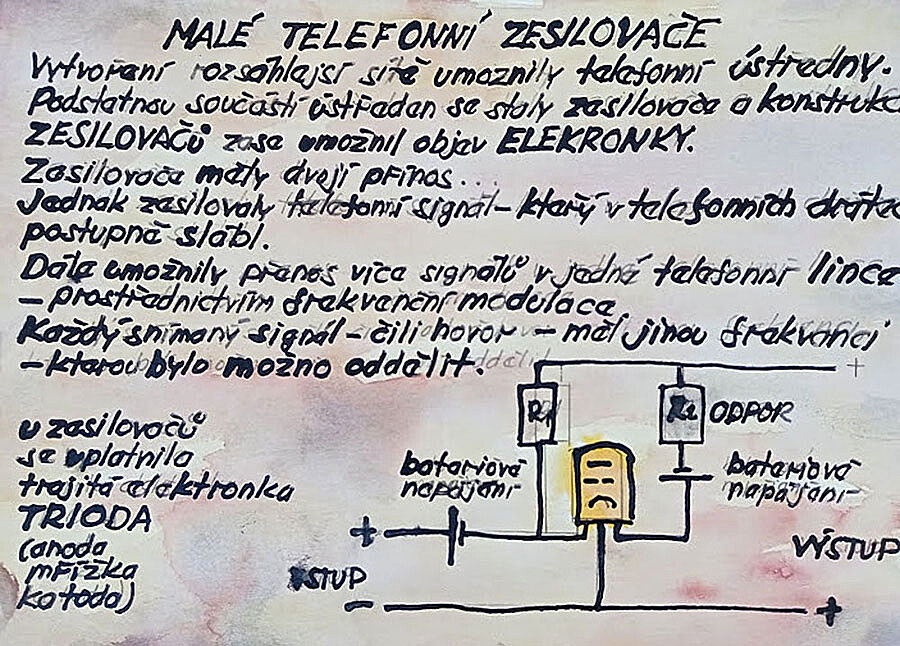 MALÉ TELEFONNÍ ZESILOVAČE
Vytvoření rozsáhlejsí sítě umoznily telefonní ústředny.
Podstatnou součástí ústředen se staly zesilovače a konstrukc
ZESILOVAČŮ zase umožnil objev ELEKRONKY.
Zesilovače měly dvejí přínos...
Jednak zesilovaly telefonní signál - který v telefonních dráte
postupně slábl.
Dále umožnily přenos více signálů v jedné telefonní lince
- prostřednictvím frekvenční modulace
Každý snímaný signál - čili hovor - měl jinou frekvenci
- kterou bylo možno oddělit.
+
R1
R2 ODPOR
u zesilovačů
se uplatnila
trojitá elektronka
TRIODA
(anoda
mřížka
katoda)
bateriové
napájení
bateriové
napájení
+
VÝSTUP
VSTUP
-
+